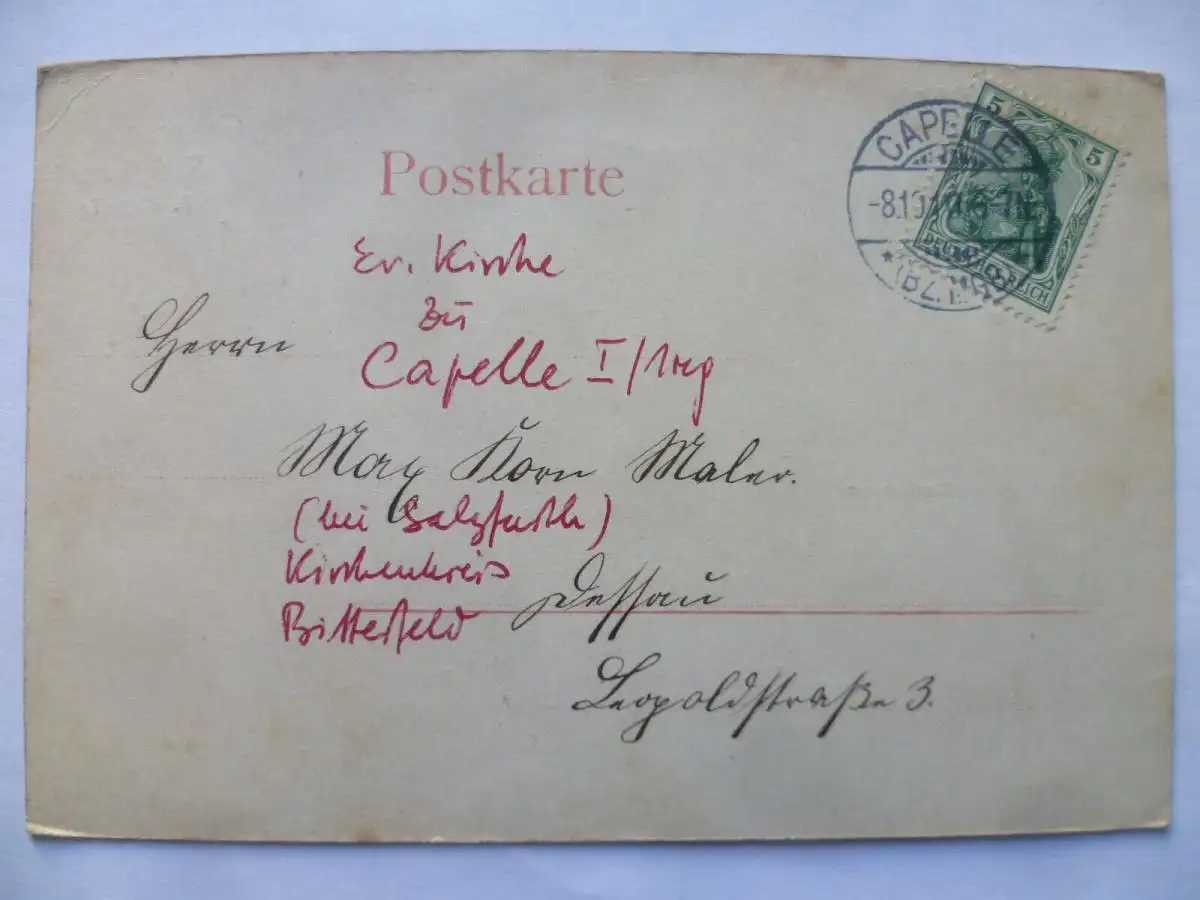 Postkarte
5 5
DEUTSCHES REICH
CAPELLE
-8.10
(BZ.
Ev. Kirche
zu
Capelle I/
Herrn
Max Korn Maler.
(bei Salzfurth)
Kirchenkreis
Bitterfeld
Dessau
Leopoldstraße 3.